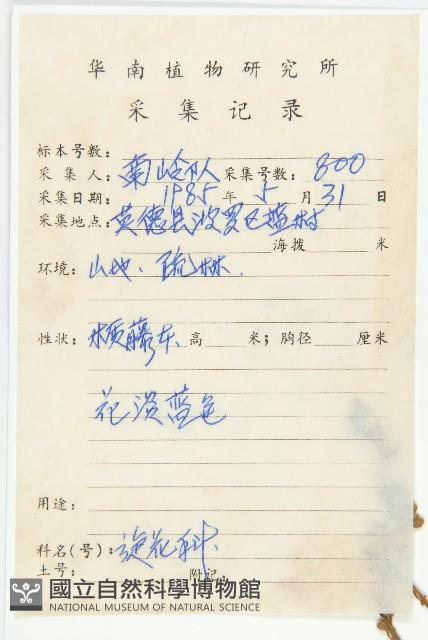 华南植物研究所
采集记录
标本号数:
采集人: 南岭队 采集号数: 800
采集日期: 1985 年 5 月 31 日
采集地点: 英德县波罗区蓝村
海拨 米
环境: 山地、疏林.
性状: 木质藤本. 高 米; 胸径 厘米
花淡蓝色
用途:
科名(号): 旋花科.
土号: 附记:
國立自然科學博物館
NATIONAL MUSEUM OF NATURAL SCIENCE